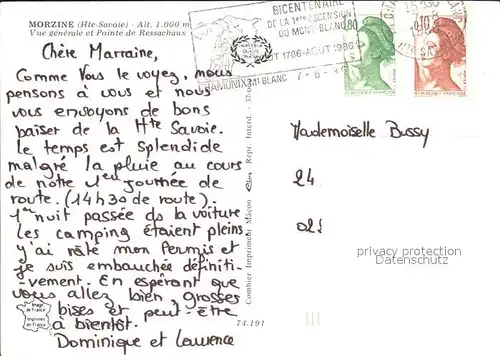 MORZINE (Hte-Savoie) - Alt. 1.000 m
Vue générale et Pointe de Ressachaux
Chère Marraine,
Comme Vous le voyez, nous
pensons à vous et nous
vous envoyons de bons
baiser de la Hte Savoie.
Le temps est splendide
malgré la pluie au cours
de notre 1ère journée de
route. (14h30 de route).
1ère nuit passée ds la voiture
les camping étaient pleins
j'ai raté mon Permis et
je suis embauchée définiti-
-vement. En espérant que
vous allez bien, grosses
bises et peut-être
à bientôt.
Dominique et Laurence
Image de France
Imprimée en France
74.191
Combier Imprimeur Mâcon
Repr. Interd.
BICENTENAIRE
DE LA 1ère ASCENSION
DU MONT-BLANC
AOUT 1786-AOUT 1986
CHAMONIX MT BLANC
0,80
0,10
Mademoiselle Bussy
24
privacy protection
Datenschutz